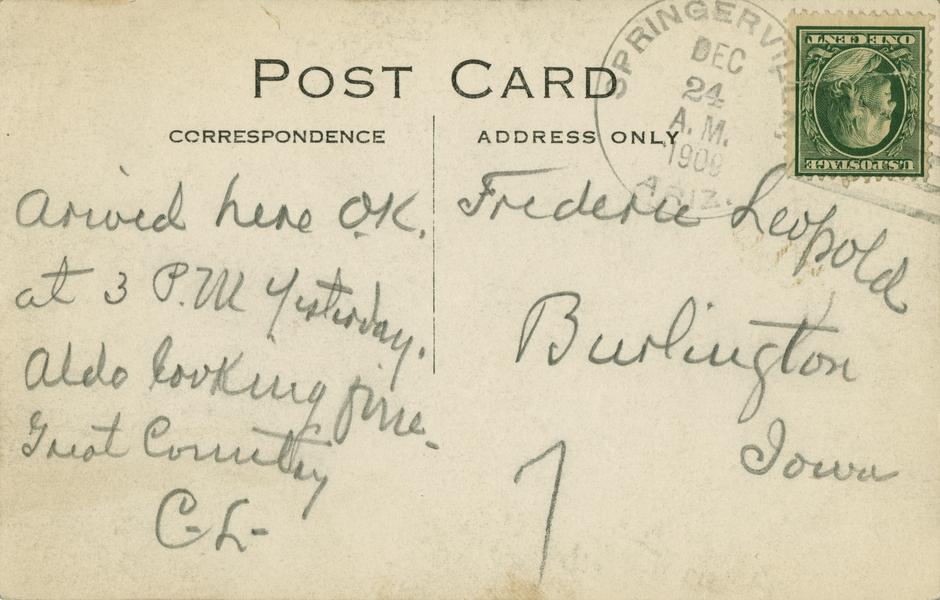 POST CARD
CORRESPONDENCE
ADDRESS ONLY
SPRINGERVILLE
DEC
24
A.M.
1909
ARIZ.
ONE CENT
U.S. POSTAGE
Arived here O.K.
at 3 P.M Yesterday.
Aldo looking fine-
Great Country
C-L-
Frederic Leopold
Burlington
Iowa
1